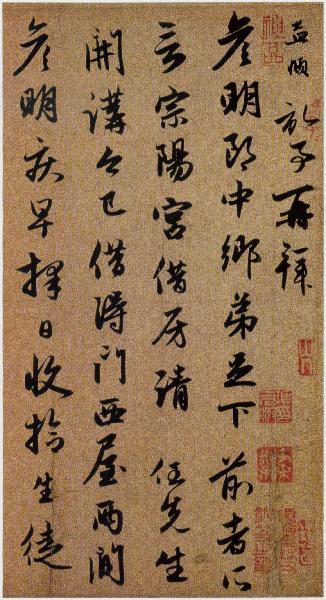 孟頫 記事再拜
彦明郎中鄉弟足下 前者所
言宗陽宮借房請 任先生
開講今已借得門西屋兩間
彦明疾早擇日收拾生徒